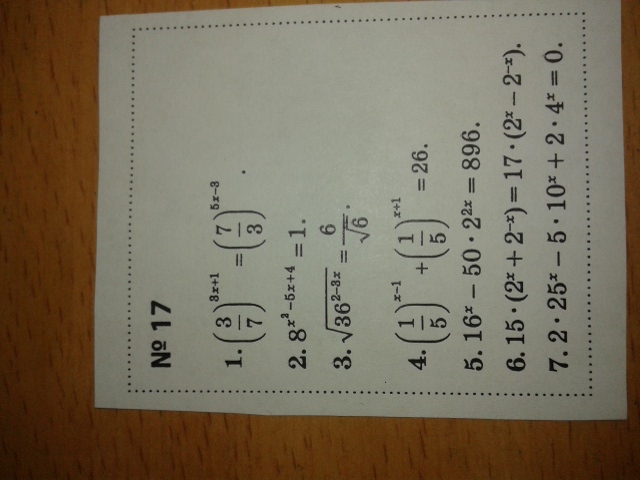 № 17
1. (3/7)^(3x+1) = (7/3)^(5x−3).
2. 8^(x²−5x+4) = 1.
3. √(36^(2−3x)) = 6/√6.
4. (1/5)^(x−1) + (1/5)^(x+1) = 26.
5. 16^x − 50 · 2^(2x) = 896.
6. 15 · (2^x + 2^(−x)) = 17 · (2^x − 2^(−x)).
7. 2 · 25^x − 5 · 10^x + 2 · 4^x = 0.